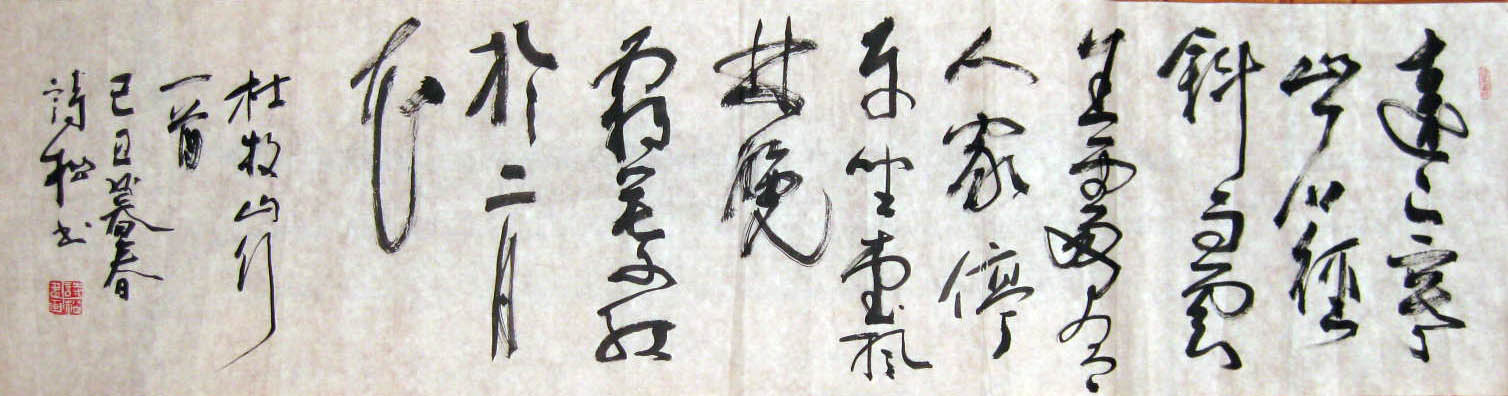 遠上寒
山石徑
斜白雲
生處有
人家停
車坐愛楓
林晚
霜葉紅
於二月
花
杜牧山行
一首
己丑暮春
詩松书